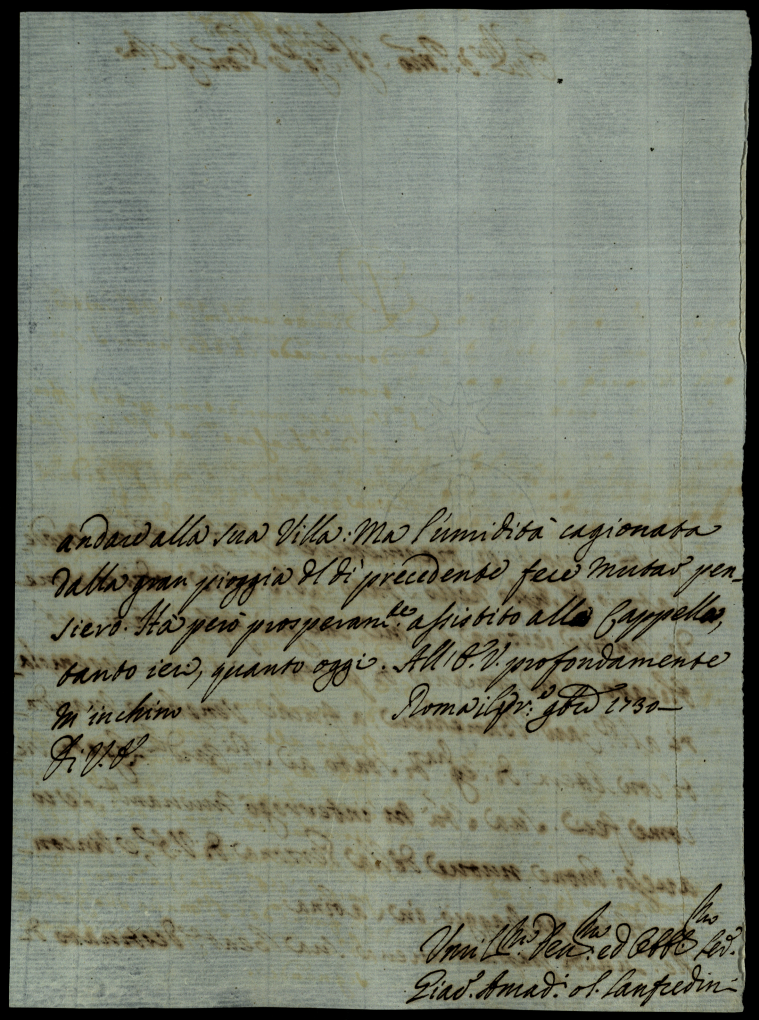 andare alla sua Villa: Ma l'umidità cagionata
dalla gran pioggia del dì precedente fece mutar pen-
siero. Ha però prosperam.te assistito alla Cappella,
tanto ieri, quanto oggi. All'E.V. profondamente
m'inchino Roma il pr.o 9bre 1730
Di V.E.
Umil.mo Dev.mo ed Obb.mo Ser.
Giac. Amad. Lanfredini